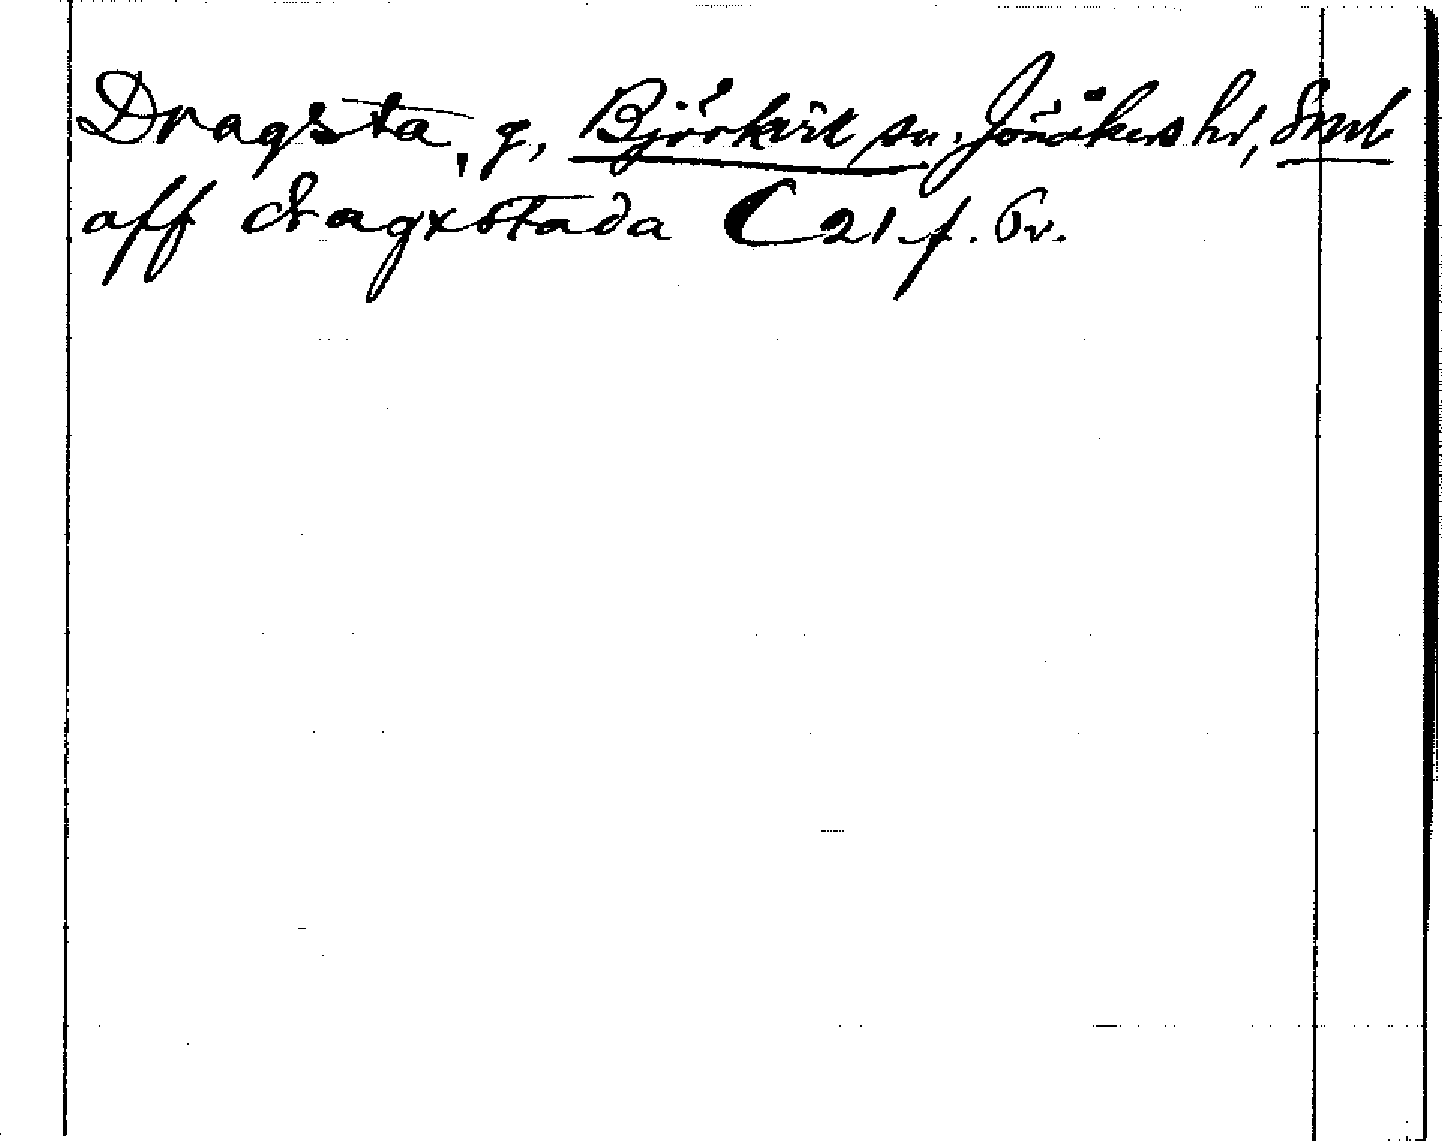 Dragsta, g, Björkvik sn, Jönåkers hd, Sml
aff dragxstada C 21 f. 6v.